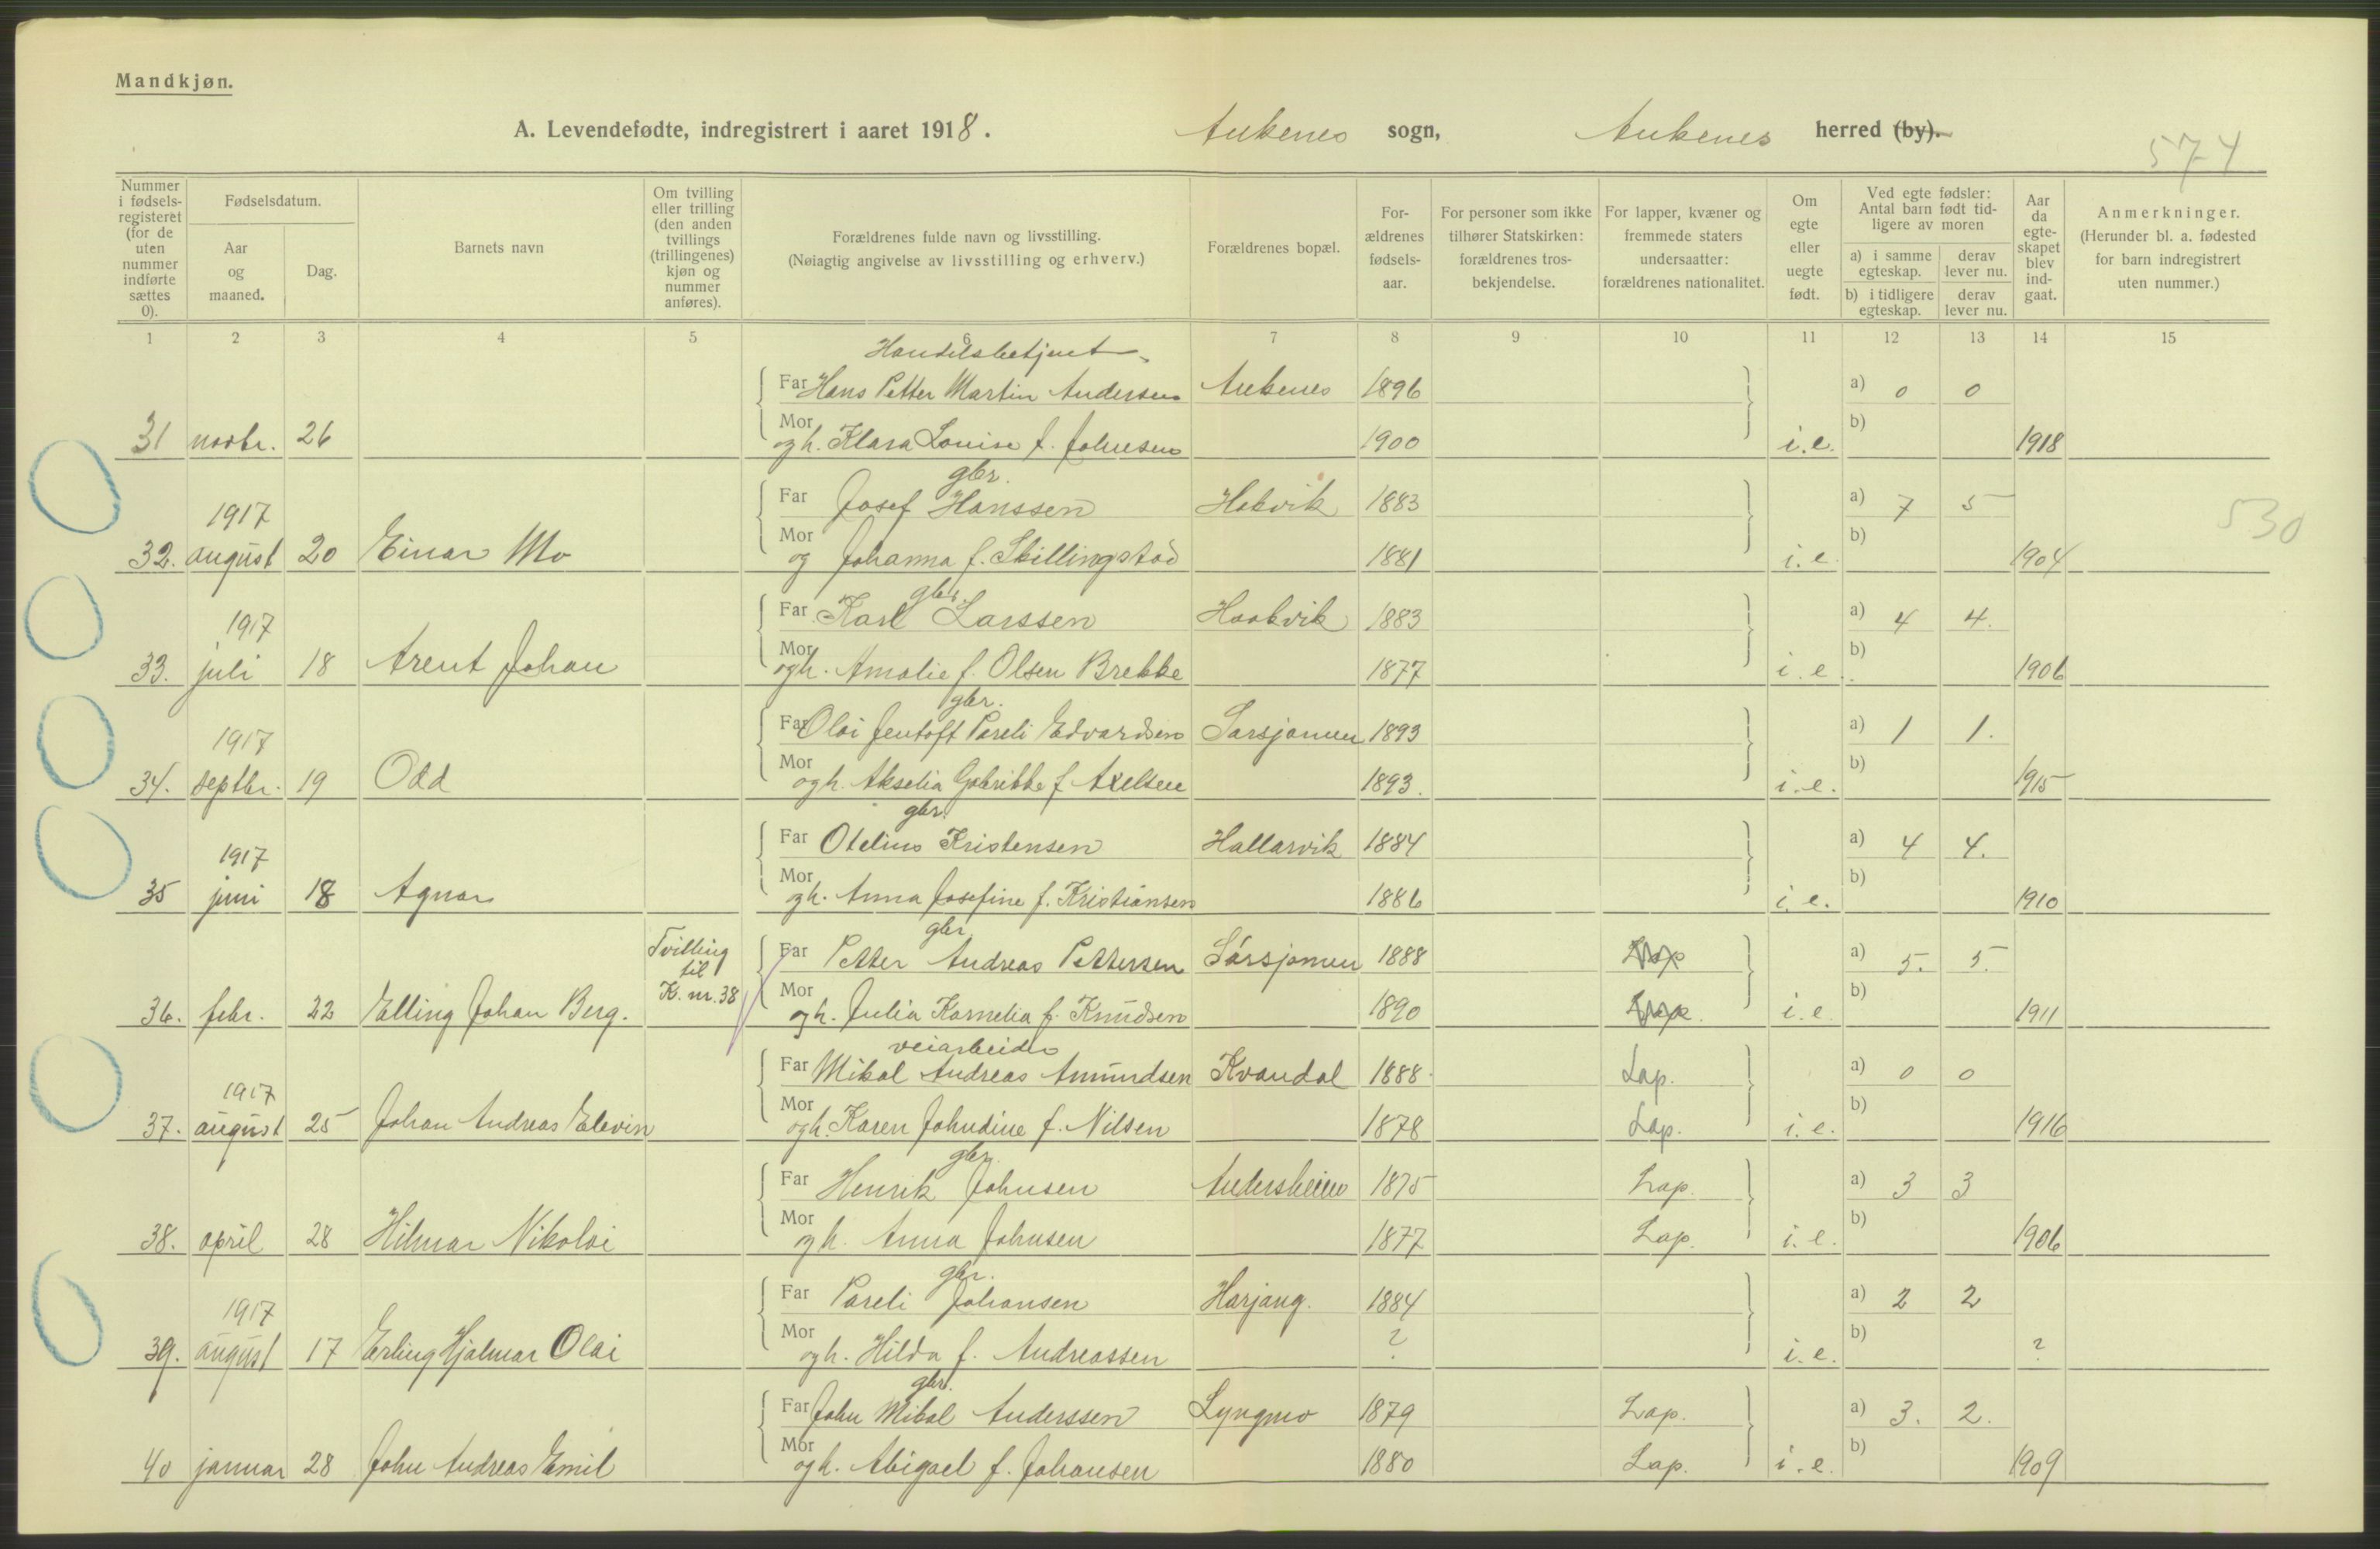 Mandkjøn.
A. Levendefødte, indregistrert i aaret 1918. Ankenes sogn, Ankenes herred (by).
574
Nummer i fødselsregisteret (for de uten nummer indførte sættes 0).
Fødselsdatum.
Aar og maaned.
Dag.
Barnets navn
Om tvilling eller trilling (den anden tvillings (trillingenes) kjøn og nummer anføres).
Forældrenes fulde navn og livsstilling.
(Nøiagtig angivelse av livsstilling og erhverv.)
Forældrenes bopæl.
Forældrenes fødselsaar.
For personer som ikke tilhører Statskirken: forældrenes trosbekjendelse.
For lapper, kvæner og fremmede staters undersaatter: forældrenes nationalitet.
Om egte eller uegte født.
Ved egte fødsler: Antal barn født tidligere av moren
a) i samme egteskap.
derav lever nu.
b) i tidligere egteskap.
derav lever nu.
Aar da egteskapet blev indgaat.
Anmerkninger.
(Herunder bl. a. fødested for barn indregistrert uten nummer.)
1 2 3 4 5 6 7 8 9 10 11 12 13 14 15
Handelsbetjent
Far Hans Petter Martin Andersen Ankenes 1896 a) 0 0
31 novbr. 26 Mor og h. Klara Louise f. Johnsen 1900 i.e. b) 1918
gbr.
1917 Far Josef Hanssen Hakvik 1883 a) 7 5 530
32. august 20 Einar Mo Mor og Johanna f. Skillingstad 1881 i.e. b) 1904
gbr.
1917 Far Karl Larssen Haakvik 1883 a) 4 4.
33. juli 18 Arent Johan Mor og h. Amalie f. Olsen Brekke 1877 i.e. b) 1906
gbr.
1917 Far Olai Jentoft Pareli Edvardsen Sarsjamen 1893 a) 1 1.
34. septbr. 19 Odd Mor og h. Akselia Gabrikke f. Axelsen 1893. i.e. b) 1915
gbr.
1917 Far Otelius Kristensen Hallarvik 1884 a) 4 4.
35 juni 18 Agnar Mor og h. Anna Josefine f. Kristiansen 1886 i.e. b) 1910
gbr.
Tvilling til K. nr. 38 Far Petter Andreas Pettersen Sarsjamen 1888 Lap a) 5. 5.
36. febr. 22 Elling Johan Berg. Mor og h. Julia Kornelia f. Knudsen 1890 Lap. i.e. b) 1911
veiarbeider
1917 Far Mikal Andreas Amundsen Kvandal 1888 Lap. a) 0 0
37. august 25 Johan Andreas Elevin Mor og h. Karen Johndine f. Nilsen 1878 Lap. i.e. b) 1916
gbr.
Far Henrik Johnsen Andersheim 1875 Lap. a) 3 3
38. april 28 Hilmar Nikolai Mor og h. Anna Johnsen 1877 Lap. i.e. b) 1906
gbr.
1917 Far Pareli Johansen Harjang. 1884 a) 2 2
39. august 17 Erling Hjalmar Olai Mor og h. Hilda f. Andreassen ? i.e. b) ?
gbr.
Far John Mikal Anderssen Lyngmo 1879 Lap. a) 3. 2.
40 januar 28 John Andreas Emil Mor og h. Abigael f. Johansen 1880 Lap. i.e. b) 1909